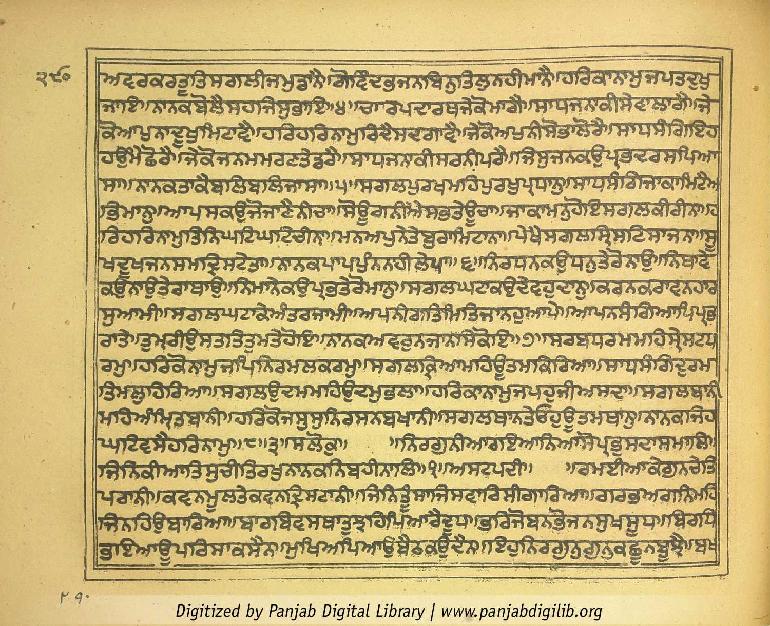 ਅਵਰਕਰਤੂਤਿਸਗਲੀਜਮੁਡਾਨੈ॥ਗੋਵਿੰਦਭਜਨਬਿਨੁਤਿਲੁਨਹੀਮਾਨੈ॥ਹਰਿਕਾਨਾਮੁਜਪਤਦੁਖੁ
ਜਾਇ॥ਨਾਨਕਬੋਲੈਸਹਜਿਸੁਭਾਇ॥੪॥ਚਾਰਪਦਾਰਥਜੇਕੋਮਾਗੈ॥ਸਾਧਜਨਾਕੀਸੇਵਾਲਾਗੈ॥ਜੇ
ਕੋਆਪੁਨਾਦੂਖੁਮਿਟਾਵੈ॥ਹਰਿਹਰਿਨਾਮੁਰਿਦੈਸਦਗਾਵੈ॥ਜੇਕੋਅਪੁਨੀਸੋਭਾਲੋਰੈ॥ਸਾਧਸੰਗਿਇਹ
ਹਉਮੈਛੋਰੈ॥ਜੇਕੋਜਨਮਮਰਣਤੇਡਰੈ॥ਸਾਧਜਨਾਕੀਸਰਨੀਪਰੈ॥ਜਿਸੁਜਨਕਉਪ੍ਰਭਦਰਸਪਿਆ
ਸਾ॥ਨਾਨਕਤਾਕੈਬਲਿਬਲਿਜਾਸਾ॥੫॥ਸਗਲਪੁਰਖਮਹਿਪੁਰਖੁਪ੍ਰਧਾਨੁ॥ਸਾਧਸੰਗਿਜਾਕਾਮਿਟੈਅ
ਭਿਮਾਨੁ॥ਆਪਸਕਉਜੋਜਾਣੈਨੀਚਾ॥ਸੋਊਗਨੀਐਸਭਤੇਊਚਾ॥ਜਾਕਾਮਨੁਹੋਇਸਗਲਕੀਰੀਨਾ॥ਹ
ਰਿਹਰਿਨਾਮੁਤਿਨਿਘਟਿਘਟਿਚੀਨਾ॥ਮਨਅਪੁਨੇਤੇਬੁਰਾਮਿਟਾਨਾ॥ਪੇਖੈਸਗਲਸ੍ਰਿਸਟਿਸਾਜਨਾ॥ਸੂ
ਖਦੂਖਜਨਸਮਦ੍ਰਿਸਟੇਤਾ॥ਨਾਨਕਪਾਪਪੁੰਨਨਹੀਲੇਪਾ॥੬॥ਨਿਰਧਨਕਉਧਨੁਤੇਰੋਨਾਉ॥ਨਿਥਾਵੇ
ਕਉਨਾਉਤੇਰਾਥਾਉ॥ਨਿਮਾਨੇਕਉਪ੍ਰਭਤੇਰੋਮਾਨੁ॥ਸਗਲਘਟਕਉਦੇਵਹੁਦਾਨੁ॥ਕਰਨਕਰਾਵਨਹਾਰ
ਸੁਆਮੀ॥ਸਗਲਘਟਾਕੇਅੰਤਰਜਾਮੀ॥ਅਪਨੀਗਤਿਮਿਤਿਜਾਨਹੁਆਪੇ॥ਆਪਨਸੰਗਿਆਪਿਪ੍ਰਭ
ਰਾਤੇ॥ਤੁਮ੍ਰੀਉਸਤਤਿਤੁਮਤੇਹੋਇ॥ਨਾਨਕਅਵਰੁਨਜਾਨਸਿਕੋਇ॥੭॥ਸਰਬਧਰਮਮਹਿਸ੍ਰੇਸਟਧ
ਰਮੁ॥ਹਰਿਕੋਨਾਮੁਜਪਿਨਿਰਮਲਕਰਮੁ॥ਸਗਲਕ੍ਰਿਆਮਹਿਊਤਮਕਿਰਿਆ॥ਸਾਧਸੰਗਿਦੁਰਮ
ਤਿਮਲੁਹਿਰਿਆ॥ਸਗਲਉਦਮਮਹਿਉਦਮੁਭਲਾ॥ਹਰਿਕਾਨਾਮੁਜਪਹੁਜੀਅਸਦਾ॥ਸਗਲਬਾਨੀ
ਮਹਿਅੰਮ੍ਰਿਤਬਾਨੀ॥ਹਰਿਕੋਜਸੁਸੁਨਿਰਸਨਬਖਾਨੀ॥ਸਗਲਥਾਨਤੇਓਹੁਊਤਮਥਾਨੁ॥ਨਾਨਕਜਿਹ
ਘਟਿਵਸੈਹਰਿਨਾਮੁ॥੮॥੩॥ਸਲੋਕੁ॥ ॥ਨਿਰਗੁਨੀਆਰਇਆਨਿਆਸੋਪ੍ਰਭੁਸਦਾਸਮਾਲਿ॥
ਜਿਨਿਕੀਆਤਿਸੁਚੀਤਿਰਖੁਨਾਨਕਨਿਬਹੀਨਾਲਿ॥੧॥ਅਸਟਪਦੀ॥ ॥ਰਮਈਆਕੇਗੁਨਚੇਤਿ
ਪਰਾਨੀ॥ਕਵਨਮੂਲਤੇਕਵਨਦ੍ਰਿਸਟਾਨੀ॥ਜਿਨਿਤੂੰਸਾਜਿਸਵਾਰਿਸੀਗਾਰਿਆ॥ਗਰਭਅਗਨਿਮਹਿ
ਜਿਨਹਿਉਬਾਰਿਆ॥ਬਾਰਬਿਵਸਥਾਤੁਝਹਿਪਿਆਰੈਦੂਧ॥ਭਰਿਜੋਬਨਭੋਜਨਸੁਖਸੂਧ॥ਬਿਰਧਿ
ਭਇਆਊਪਰਿਸਾਕਸੈਨ॥ਮੁਖਿਅਪਿਆਉਬੈਠਕਉਦੈਨ॥ਇਹੁਨਿਰਗੁਨੁਗੁਨੁਕਛੂਨਬੂਝੈ॥ਬਖ
Digitized by Panjab Digital Library | www.panjabdigilib.org